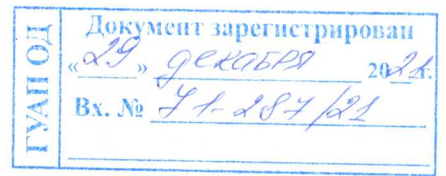 ГУАП ОД
Документ зарегистрирован
«29» декабря 2021г.
Вх. № 71-287/21